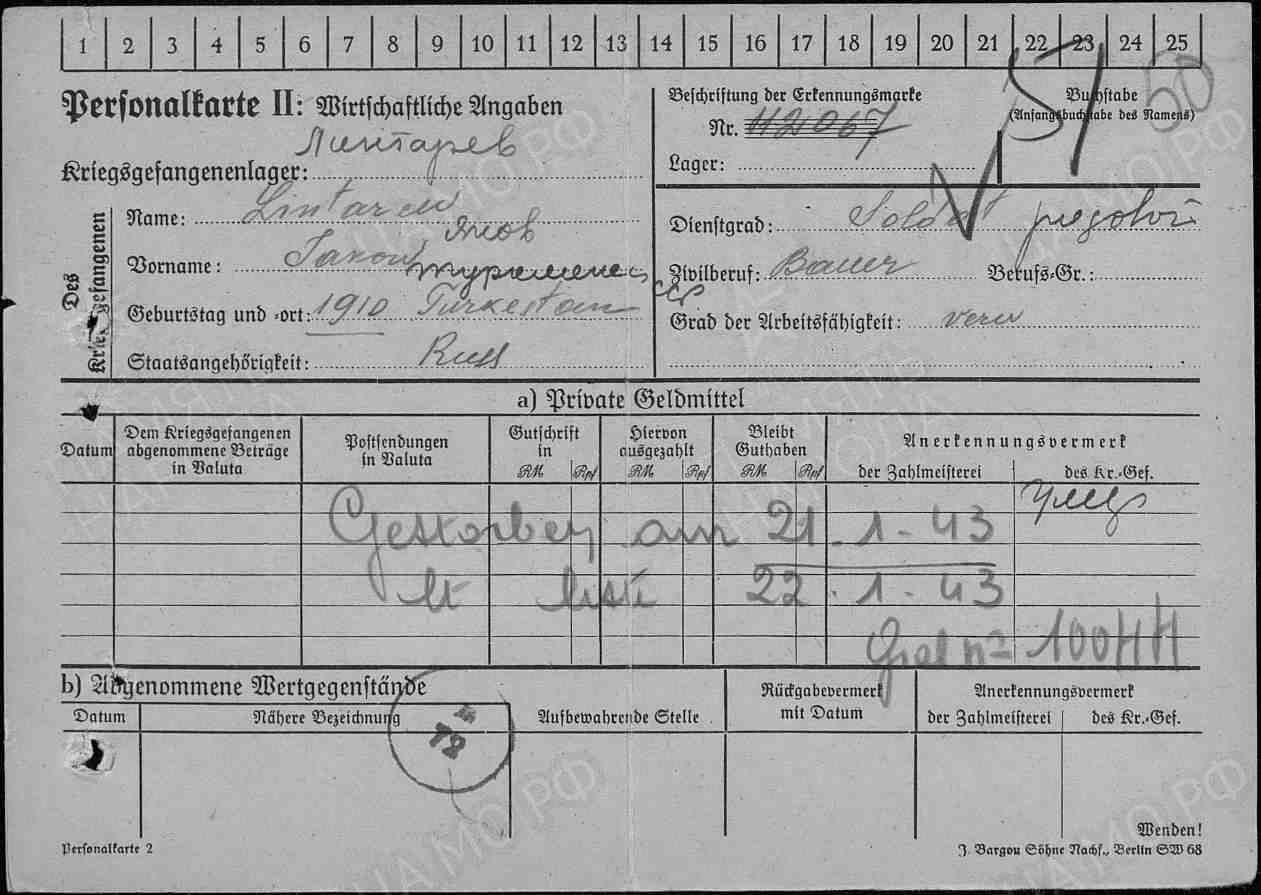 1 2 3 4 5 6 7 8 9 10 11 12 13 14 15 16 17 18 19 20 21 22 23 24 25
Personalkarte II: Wirtschaftliche Angaben
Beschriftung der Erkennungsmarke
Nr. 112067
Lager:
Buchstabe
(Anfangsbuchstabe des Namens)
50
Линтарев
Kriegsgefangenenlager:
Des Kriegsgefangenen
Name: Lintarew
Яков
Vorname: Jakow
туркменс
ССР
Geburtstag und -ort: 1910 Turkestan
Staatsangehörigkeit: Russ
Dienstgrad: Soldat рядовой
Zivilberuf: Bauer Berufs-Gr.:
Grad der Arbeitsfähigkeit:
a) Private Geldmittel
Datum
Dem Kriegsgefangenen abgenommene Beträge in Valuta
Postsendungen in Valuta
Gutschrift in
RM Rpf
Hiervon ausgezahlt
RM Rpf
Bleibt Guthaben
RM Rpf
Anerkennungsvermerk
der Zahlmeisterei
des Kr.-Gef.
Gestorben am 21.1-43
lt liste 22.1-43
b) Abgenommene Wertgegenstände
Datum
Nähere Bezeichnung
Aufbewahrende Stelle
Rückgabevermerk mit Datum
Anerkennungsvermerk
der Zahlmeisterei
des Kr.-Gef.
72
Wenden!
Personalkarte 2
J. Bargou Söhne Nachf., Berlin SW 68
ЦА МО РФ